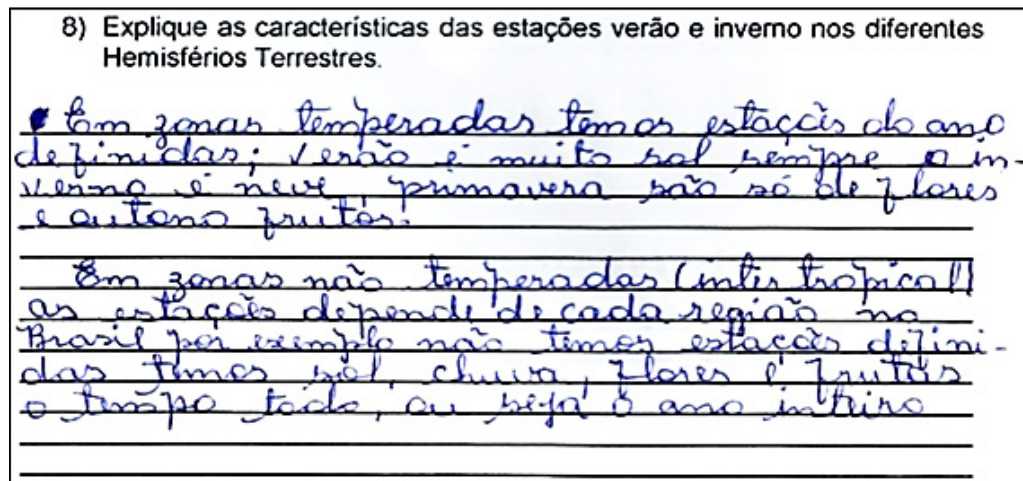 8) Explique as características das estações verão e inverno nos diferentes
Hemisférios Terrestres.
Em zonas temperadas temos estações do ano
definidas; verão é muito sol sempre o in-
verno é neve, primavera são só de flores
e outono frutos.
Em zonas não temperadas (inter tropical)
as estações depende de cada região no
Brasil por exemplo não temos estações defini-
das temos sol, chuva, flores e frutas
o tempo todo, ou seja o ano inteiro